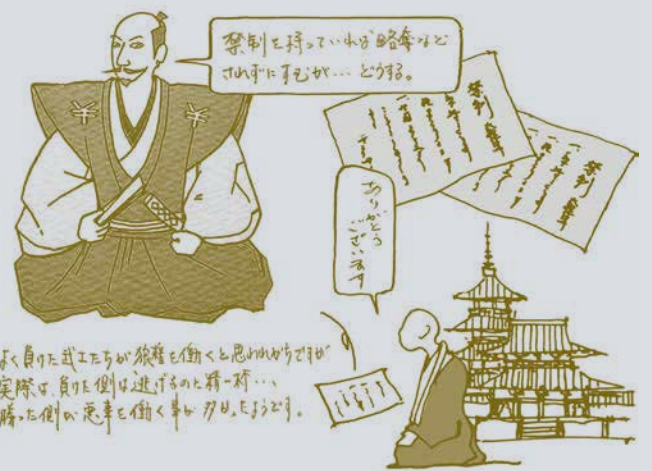 禁制を持っていれば略奪など
されずにすむが…どうする。
禁制
禁制
ありがとう
ございます
よく負けた武士たちが狼藉を働くと思われがちですが
実際は、負けた側は逃げるのに精一杯…、
勝った側が悪事を働く事が多かったようです。